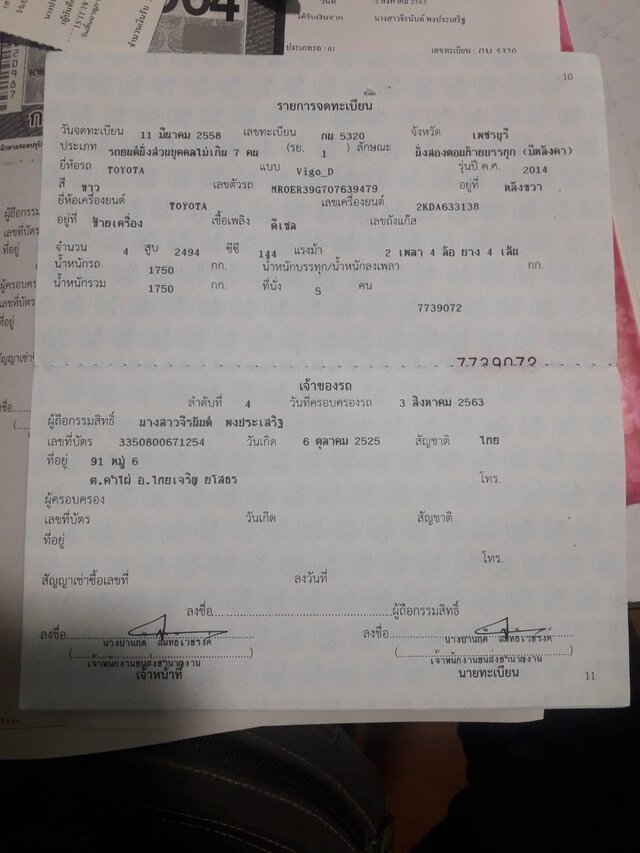 3 สิงหาคม 2563
ได้รับเงินจาก นางสาวจีรนันต์ พงประเสริฐ
ประเภทรถ : 01 เลขทะเบียน : กน 5320
10
รายการจดทะเบียน
วันจดทะเบียน 11 มีนาคม 2558 เลขทะเบียน กน 5320 จังหวัด เพชรบุรี
ประเภท รถยนต์นั่งส่วนบุคคลไม่เกิน 7 คน (รย. 1 ) ลักษณะ นั่งสองตอนท้ายบรรทุก (มีหลังคา)
ยี่ห้อรถ TOYOTA แบบ Vigo_D รุ่นปี ค.ศ. 2014
สี ขาว เลขตัวรถ MROER39G707639479 อยู่ที่ หลังขวา
ยี่ห้อเครื่องยนต์ TOYOTA เลขเครื่องยนต์ 2KDA633138
อยู่ที่ ซ้ายเครื่อง เชื้อเพลิง ดีเซล เลขถังแก๊ส
จำนวน 4 สูบ 2494 ซีซี 144 แรงม้า 2 เพลา 4 ล้อ ยาง 4 เส้น
น้ำหนักรถ 1750 กก. น้ำหนักบรรทุก/น้ำหนักลงเพลา กก.
น้ำหนักรวม 1750 กก. ที่นั่ง 5 คน
7739072
7739072
เจ้าของรถ
ลำดับที่ 4 วันที่ครอบครองรถ 3 สิงหาคม 2563
ผู้ถือกรรมสิทธิ์ นางสาวจีรนันต์ พงประเสริฐ
เลขที่บัตร 3350800671254 วันเกิด 6 ตุลาคม 2525 สัญชาติ ไทย
ที่อยู่ 91 หมู่ 6
ต.คำไผ่ อ.ไทยเจริญ ยโสธร โทร.
ผู้ครอบครอง
เลขที่บัตร วันเกิด สัญชาติ
ที่อยู่
โทร.
สัญญาเช่าซื้อเลขที่ ลงวันที่
ลงชื่อ ผู้ถือกรรมสิทธิ์
ลงชื่อ ลงชื่อ
เจ้าพนักงานขนส่งชำนาญงาน เจ้าพนักงานขนส่งชำนาญงาน
เจ้าหน้าที่ นายทะเบียน
11